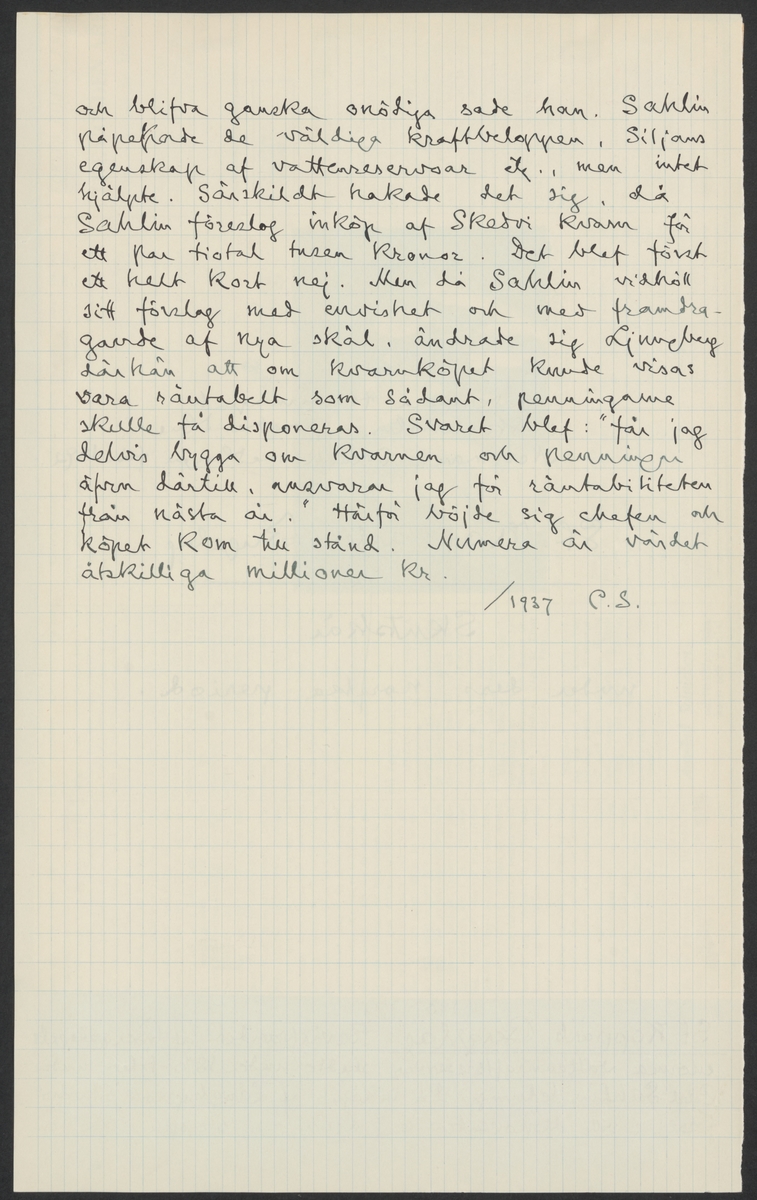 och blifva ganska onödiga sade han. Sahlin
påpekade de väldiga kraftbeloppen, Siljans
egenskap af vattenreservoar etc., men intet
hjälpte. Särskildt hakade det sig, då
Sahlin föreslog inköp af Skedvi kvarn för
ett par tiotal tusen kronor. Det blef först
ett helt kort nej. Men då Sahlin vidhöll
sitt förslag med envishet och med framdra-
gande af nya skäl, ändrade sig Ljungberg
därhän att om kvarnköpet kunde visas
vara räntabelt som sådant, penningarne
skulle få disponeras. Svaret blef: "får jag
delvis bygga om kvarnen och penningar
äfven därtill, ansvarar jag för räntabiliteten
från nästa år." Härför böjde sig chefen och
köpet kom till stånd. Numera är värdet
åtskilliga millioner kr.
/1937 C.S.